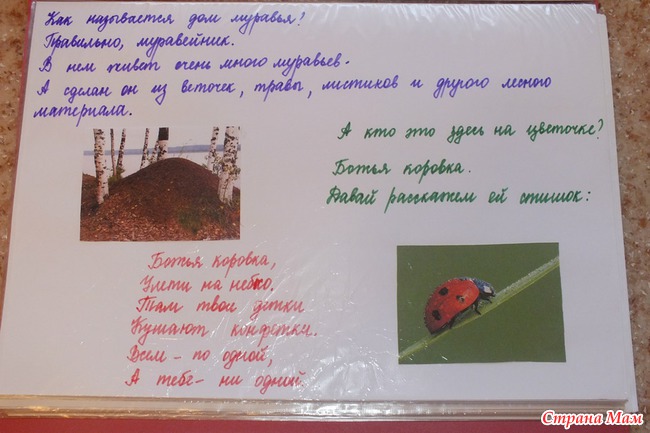 Как называется дом муравья?
Правильно, муравейник.
В нем живет очень много муравьев.
А сделан он из веточек, травы, листиков и другого лесного
материала.
А кто это здесь на цветочке?
Божья коровка.
Давай расскажем ей стишок:
Божья коровка,
Улети на небко,
Там твои детки
Кушают конфетки.
Всем - по одной,
А тебе - ни одной
Страна Мам